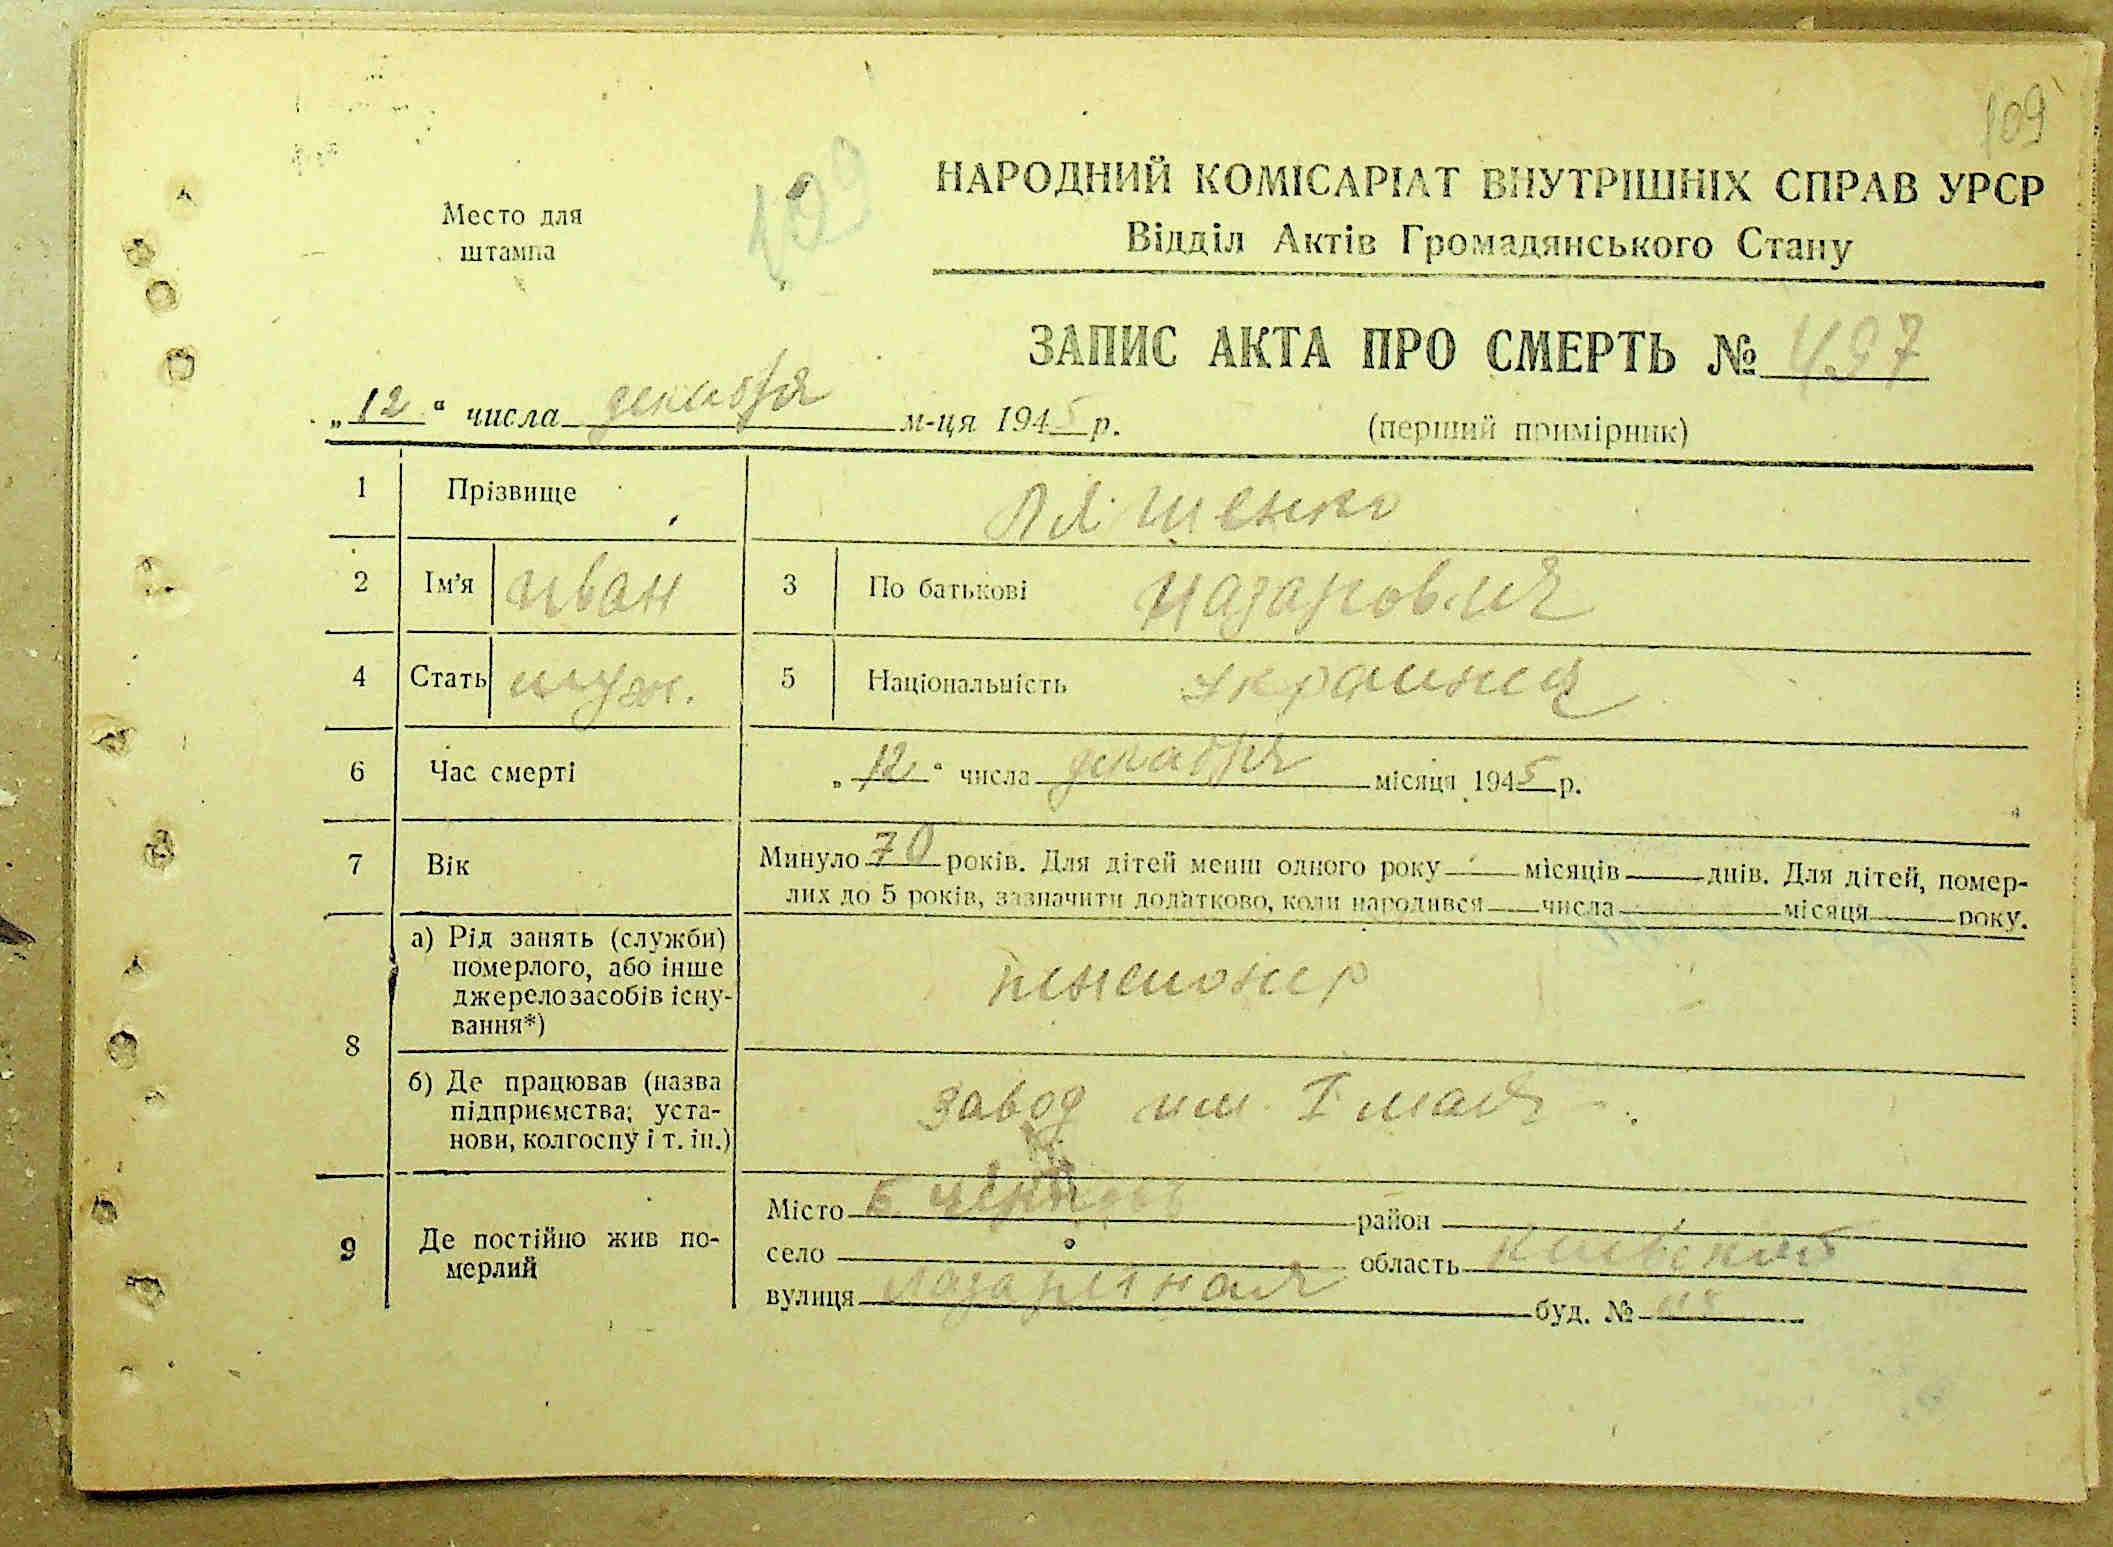 109
Место для
штампа
НАРОДНИЙ КОМІСАРІАТ ВНУТРІШНІХ СПРАВ УРСР
Відділ Актів Громадянського Стану
ЗАПИС АКТА ПРО СМЕРТЬ № 497
„12“ числа декабря м-ця 1945 р.
(перший примірник)
1 Прізвище Ляшенко
2 Ім’я Иван 3 По батькові Назарович
4 Стать муж. 5 Національність украинец
6 Час смерті „12“ числа декабря місяця 1945 р.
7 Вік Минуло 70 років. Для дітей менш одного року місяців днів. Для дітей, помер-
лих до 5 років, зазначити додатково, коли народився числа місяця року.
8 а) Рід занять (служби)
померлого, або інше
джерело засобів існу-
вання*) пенсионер
б) Де працював (назва
підприємства, уста-
нови, колгоспу і т. ін.) завод им. I мая
9 Де постійно жив по-
мерлий
Місто Б. Церковь район
село область Киевской
вулиця буд. №